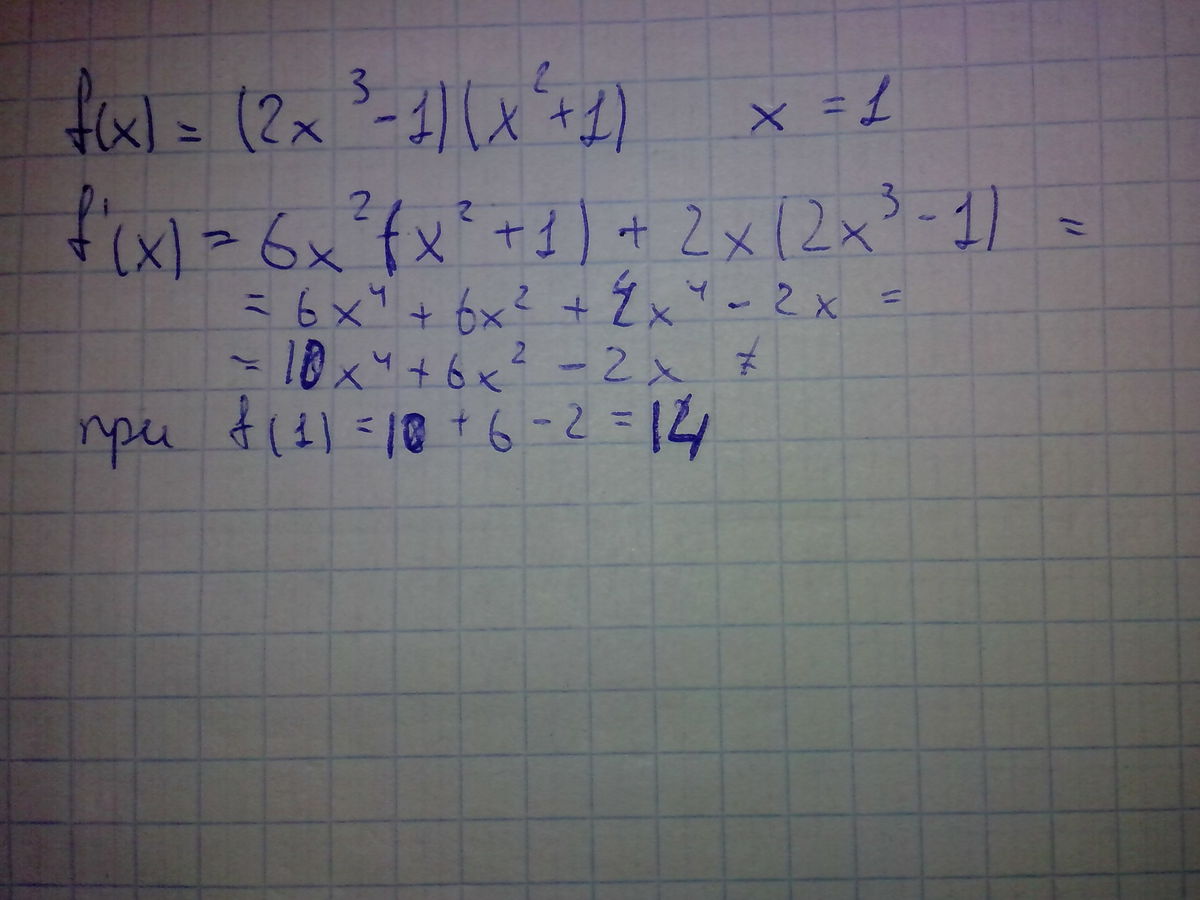 f(x) = (2x³-1)(x²+1) x = 1
f'(x) = 6x²(x²+1) + 2x(2x³-1) =
= 6x⁴ + 6x² + 4x⁴ - 2x =
= 10x⁴ + 6x² - 2x =
при f(1) = 10 + 6 - 2 = 14